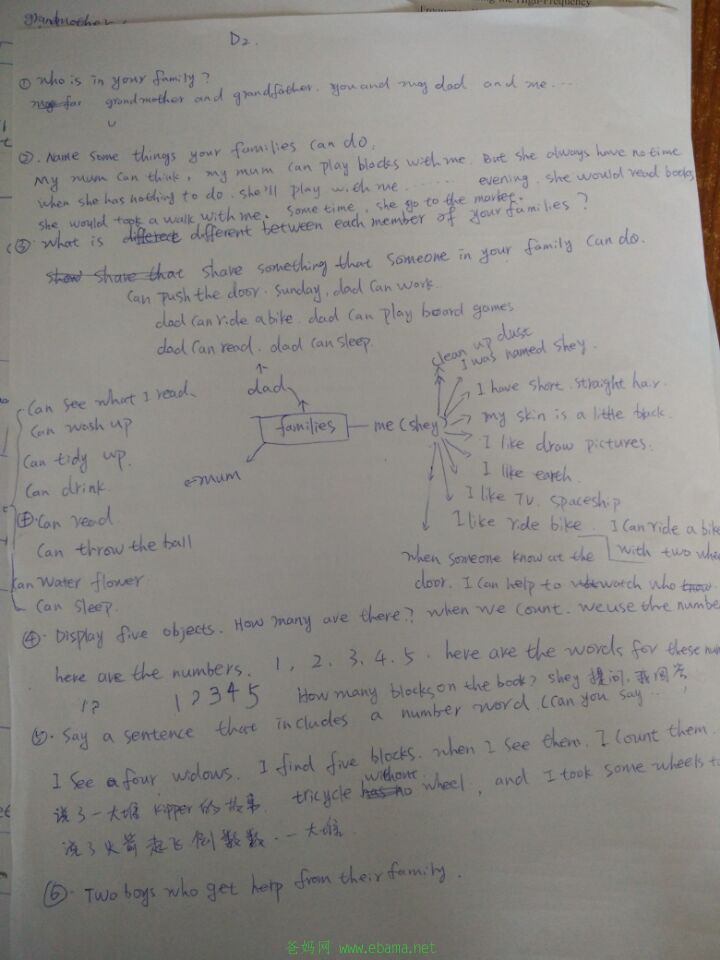 grandmother.
ing the High-Frequency
D2.
① who is in your family?
grandmother and grandfather. you and my dad and me...
②. Name some things your families can do.
My mum can think, my mum can play blocks with me. But she always have no time
when she has nothing to do. she'll play with me....... evening. she would read books
she would took a walk with me. some time, she go to the market.
③ what is different between each member of your families?
share something that someone in your family can do.
can push the door. sunday. dad can work.
dad can ride a bike. dad can play board games
dad can read. dad can sleep.
clean up dust
I was named shey.
dad
can see what I read.
I have short. straight hair.
can wash up
families
me (shey)
my skin is a little back.
can tidy up.
I like draw pictures.
mum
can drink.
I like earth.
can read
I like TV. spaceship
can throw the ball
I like ride bike. I can ride a bike
with two whe
can water flower
when someone know at the
door. I can help to watch who
can sleep.
④. Display five objects. How many are there? when we count. we use the number
here are the numbers. 1, 2. 3. 4. 5. here are the words for these num
1?
1 2 3 4 5
How many blocks on the book? shey 提问, 我回答
⑤. Say a sentence that includes a number word. (can you say...
I see four widows. I find five blocks. when I see them. I count them.
说了一大堆 kipper 的故事. tricycle without wheel, and I took some wheels to
说了火箭起飞倒数数. 一大堆
⑥. Two boys who get help from their family.
爸妈网 www.ebama.net